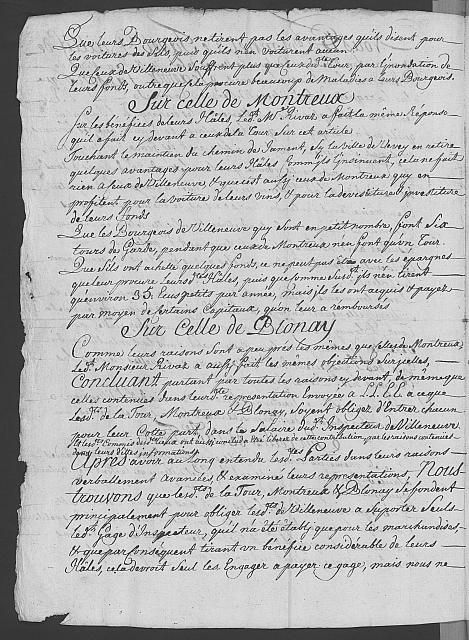 Que leurs Bourgeois netirent pas les avantages quils disent pour
les voitures des sels, puis quils nen voiturent aucun.
Que ceux de Villeneuve Souffrent plus que ceux de la Tour, par l'inondation de
leurs fonds, outre que cela procure beaucoup de Maladies a leurs Bourgeois.
Sur celle de Montreux
Sur les bénéfices de leurs Hâles, led.t M.r Rivaz a fait la même Réponse
qu'il a fait cy devant a ceux de la Tour sur cet article.
Touchant le maintien du chemin de Jament, sy la ville de Vevey en retire
quelques avantages pour leurs Hâles Comm'ils l'insinuent, cela ne fait
rien a Ceux de Villeneuve, & que cest aussy ceux de Montreux quy en
profitent pour la voiture de leurs vins, & pour la devestiture & investiture
de leurs fonds
Que les Bourgeois de Villeneuve quy sont en petit nombre, font Six
tours de Garde, pendent que ceux de Montreux nen font qu'un Cour
Que Sils ont acheté quelques fonds, ce ne peut pas être avec les épargnes
que leur procure leurs Hâles, puis que comme Susd.t ils n'en tirent
quenviron 35 Ecus petits par année, mais ils les ont acquis & payez
par moyen de sertains Capitaux, quon leur a remboursés
Sur Celle de Blonay
Comme leurs raisons sont a peu prés les mêmes que celles de Montreux,
Led.t Monsieur Rivaz a aussy fait les mêmes objections sur icelles,
Concluant partant par toutes les raisons cy devant, de même que
celles contenues dans leurs représentation Envoyée a L.L.E.E. a ce que
lesd.ts de la Tour, Montreux & Blonay, soyent obligez d'Entrer chacun
pour leur Cotte part, dans le Salaire du d.t Inspecteur de Villeneuve
dans leurs dittes informations
Après avoir au long entendu lesd.tes Parties dans leurs raisons
verballement avancées & examiné leurs representations, Nous
trouvons que lesd.ts de la Tour, Montreux & Blonay se fondent
principalement pour obliger lesd.ts de Villeneuve a Suporter Seuls
led.t Gage d'Inspecteur, qu'il na été établ que pour les marchandises
& que par Conséquent tirant un bénéfice considérable de leurs
Hâles, cela devroit Seul les Engager a payer ce gage, mais nous ne